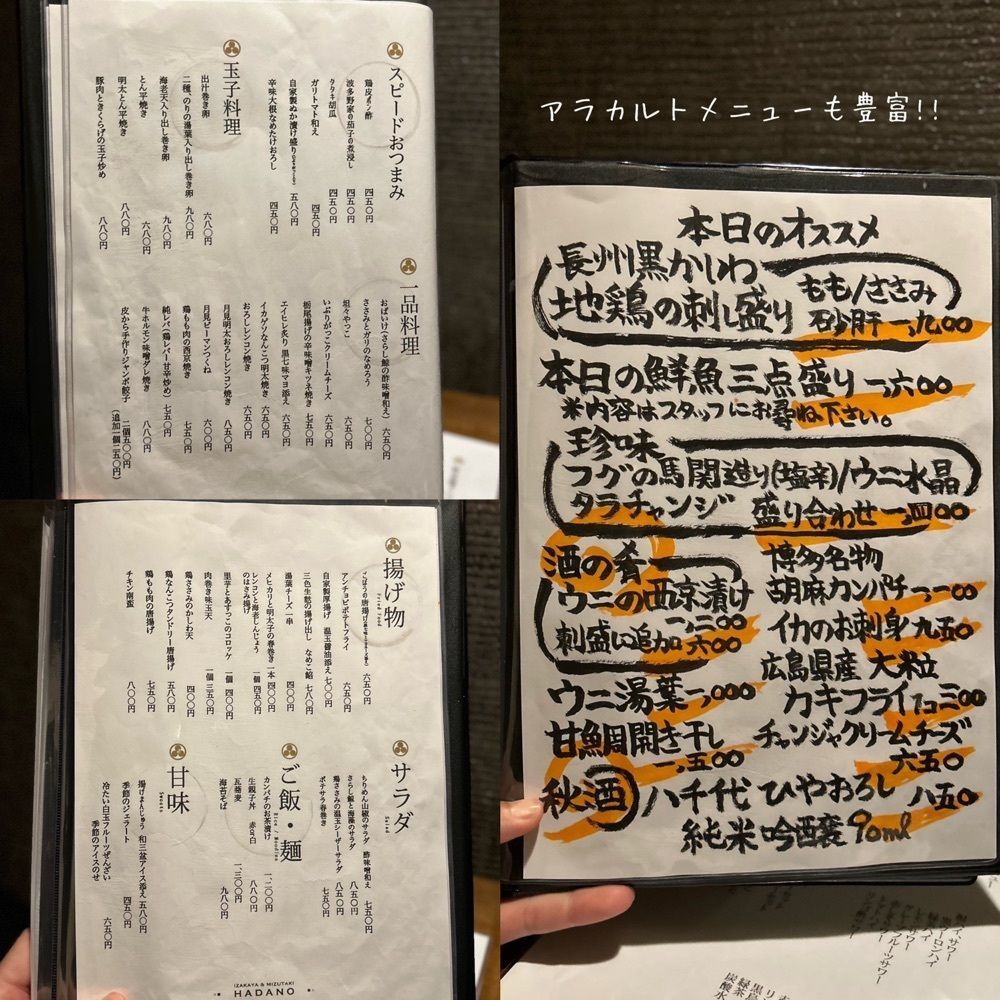 スピードおつまみ
鶏皮ポン酢 四五〇円
波多野家の茄子の煮浸し 四五〇円
タタキ胡瓜 四五〇円
ガリトマト和え 四五〇円
自家製ぬか漬け盛り 五八〇円
辛味大根なめたけおろし 四五〇円
玉子料理
出汁巻き卵 六八〇円
二種、のりの湯葉入り出し巻き卵 九八〇円
海老天入り出し巻き卵 九八〇円
とん平焼き 六八〇円
明太とん平焼き 八八〇円
豚肉ときくらげの玉子炒め 八八〇円
一品料理
おばいけ(さらし鯨の酢味噌和え) 六五〇円
ささみとガリのなめろう 七〇〇円
坦々やっこ 六五〇円
いぶりがっこクリームチーズ 六五〇円
栃尾揚げの辛味噌キツネ焼き 七〇〇円
エイヒレ炙り 黒七味マヨ添え 六五〇円
イカゲソなんこつ明太焼き 六五〇円
おろしレンコン焼き 六五〇円
月見明太おろしレンコン焼き 八五〇円
月見ピーマンつくね 六〇〇円
鶏もも肉の西京焼き 七五〇円
純レバ(鶏レバー甘辛炒め) 七五〇円
牛ホルモン味噌ダレ焼き 八八〇円
皮から手作りジャンボ餃子 二個五〇〇円
(追加一個二五〇円)
揚げ物
Fried Food
ごぼうの唐揚げ 六五〇円
アンチョビポテトフライ 六五〇円
自家製厚揚げ 温玉醤油添え 六八〇円
三色生麩の揚げ出し なめこ餡 七八〇円
湯葉チーズ 一串 四〇〇円
メヒカリと明太子の春巻き 一本 四〇〇円
レンコンと海老しんじょう
のはさみ揚げ 一個 四五〇円
里芋とあすっこのコロッケ 一個 四〇〇円
肉巻き味玉天 一個 三五〇円
鶏ささみのかしわ天 四〇〇円
鶏なんこつタンドリー唐揚げ 五八〇円
鶏もも肉の唐揚げ 七五〇円
チキン南蛮 八〇〇円
サラダ
Salad
ちりめん山椒のサラダ 酢味噌和え 七五〇円
さらし鯨と海藻のサラダ 八五〇円
鶏ささみの温玉シーザーサラダ 八五〇円
ポテサラ春巻き 七五〇円
ご飯・麺
Rice・Noodles
カンパチのお茶漬け 一、二〇〇円
生親子丼 赤or白 八八〇円
瓦蕎麦 一、三〇〇円
海苔そば 九八〇円
甘味
Sweets
揚げまんじゅう 和三盆アイス添え 五八〇円
季節のジェラート 四五〇円
冷たい白玉フルーツぜんざい
季節のアイスのせ 六五〇円
IZAKAYA & MIZUTAKI
HADANO
アラカルトメニューも豊富!!
本日のオススメ
長州黒かしわ
地鶏の刺し盛り もも/ささみ
砂肝 一、九〇〇
本日の鮮魚三点盛り 一、六〇〇
※内容はスタッフにお尋ね下さい。
珍味
フグの馬関造り(塩辛)/ウニ水晶
タラチャンジ 盛り合わせ 一、四〇〇
酒の肴
ウニの西京漬け
一、二〇〇
刺盛に追加 六〇〇
ウニ湯葉 一、〇〇〇
甘鯛開き干し
一、五〇〇
博多名物
胡麻カンパチ 一、一〇〇
イカのお刺身 九五〇
広島県産 大粒
カキフライ 1コ 三〇〇
チャンジャクリームチーズ
六五〇
秋酒 八千代 ひやおろし 八五〇
純米吟醸 90ml